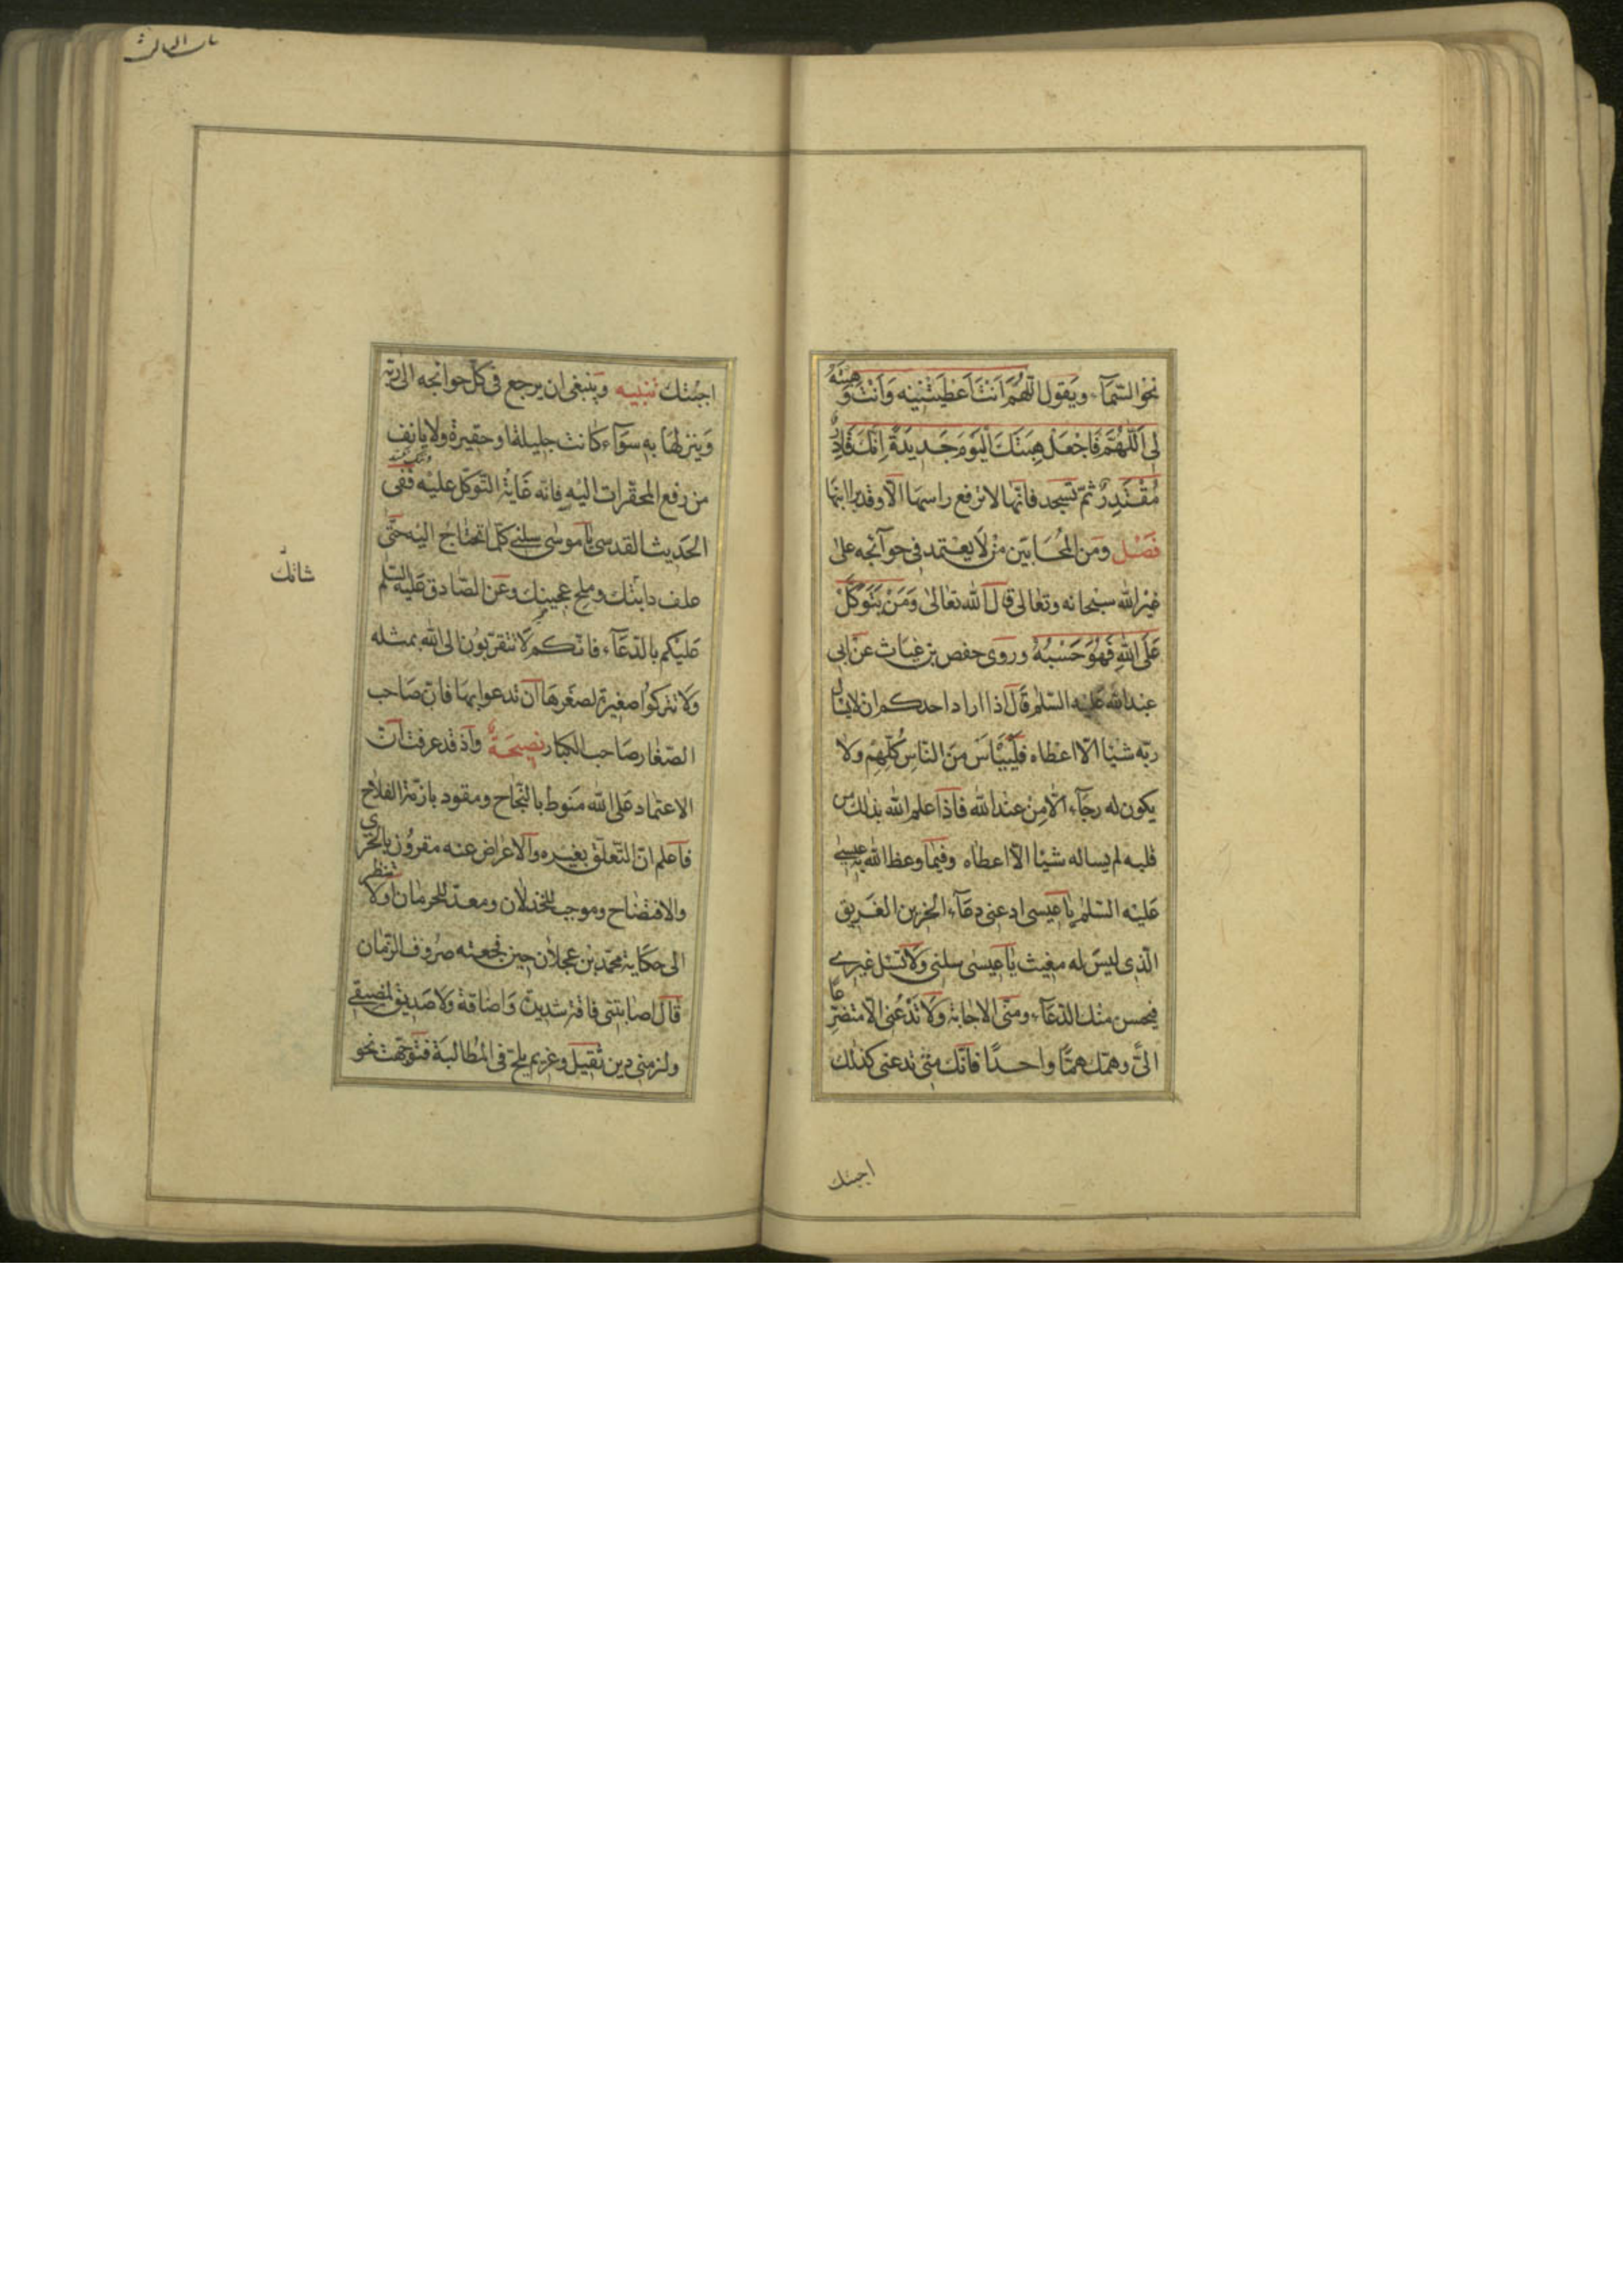 نحو السّمآء ويقول اللّهمّ انت اَعْطَيْتَنِيه وَاَنْتَ وَهَبْتَهُ
لِي اَللّهُمَّ فَاجْعَلْ هِبَتَكَ الْيَوْمَ جَدِيدَةً اِنَّكَ قَادِرٌ
مُقْتَدِرٌ ثمّ تسجد فانّها لا ترفع راسها الّا وقد
فَصْل ومن المُجَابين من لا يعتمد في حوآئجه على
غير الله سبحانه وتعالى قال الله تعالى وَمَنْ يَتَوَكَّلْ
عَلَى اللهِ فَهُوَ حَسْبُهُ وروى حفص بن غياث عن ابي
عبدالله عليه السّلم قال اذا اراد احدكم ان لا يسال
ربّه شيئا الّا اعطاه فَلْيَيْاَسْ مِنَ النّاسِ كُلِّهِمْ ولا
يكون له رجآء الّا مِنْ عند الله فاذا علم الله ذلك من
قلبه لم يساله شيئا الّا اعطاه وفيما وعظ الله به عيسى
عليه السّلم يا عيسى ادعني دعآء الحزين الغريق
الّذي ليس له مغيث يا عيسى سلني ولا تسل غيري
فيحسن منك الدّعآء ومنّي الاجابة ولا تَدْعُني الّا متضرّعا
اليّ وهمّك همّا واحدًا فانّك متى تدعني كذلك
اجبتك
اجبتك تنبيه وينبغي ان يرجع في كلّ حوائجه الى ربّه
وينزلها به سوآء كانت جليلة او حقيرة ولا يانف
من رفع المحقّرات اليه فانّه غاية التّوكّل عليه ففي
الحديث القدسي يا موسى سلني كلّما تحتاج اليه حتّى
علف دابّتك وملح عجينك وعن الصّادق عليه السّلم
عليكم بالدّعآء فانّكم لا تتقرّبون الى الله بمثله
ولا تتركوا صغيرة لصغرها ان تدعوا بها فانّ صاحب
الصّغار صاحب الكبار نصيحة واذ قد عرفت انّ
الاعتماد على الله منوط بالنّجاح ومقود بازمّة الفلاح
فاعلم انّ التّعلّق بغيره والاعراض عنه مقرون بالخزي
والافتضاح وموجب للخذلان ومعدّ للحرمان اولا تنظر
الى حكاية محمّد بن عجلان حين فجعته صروف الزّمان
قال اصابتني فاقة شديدة واضاقة ولا صديق لمضيقي
ولزمني دين ثقيل وغريم يلح في المطالبة فتوجّهت نحو
شانك